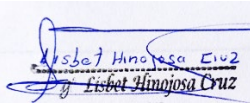 Lisbet Hinojosa Cruz
Lisbet Hinojosa Cruz